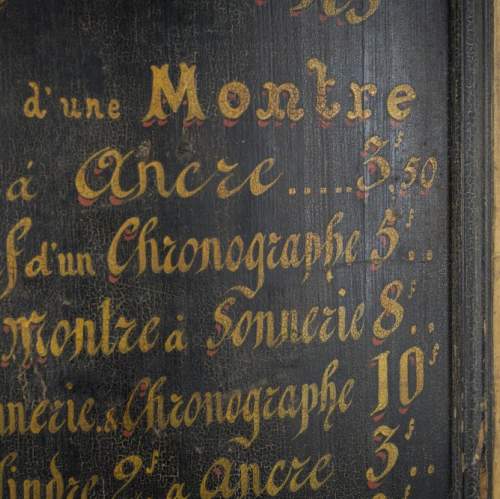 d'une Montre
à Ancre.....3f.50
f d'un Chronographe 5f..
Montre à Sonnerie 8f..
nnerie & Chronographe 10f
lindre 2f à Ancre 3f..